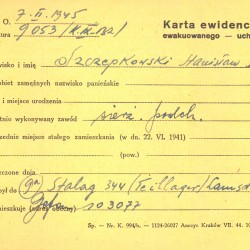 O. 7. II. 1945
Karta ewidenc
9053/
ewakuowanego — uch
wisko i imię Szczepkowski Stanisław
obiet zamężnych nazwisko panieńskie
i miejsce urodzenia
tnio wykonywany zawód sierż. podch.
ednie miejsce stałego zamieszkania (w dn. 22. VI. 1941)
(pow.)
czone dnia
był do Stalag 344 (Teillager/Lamsd
(pow.)
mieszkuje 103077
Sp. — Nr. K. 994/b. — 1124-26027 Anczyc Kraków VII. 44.